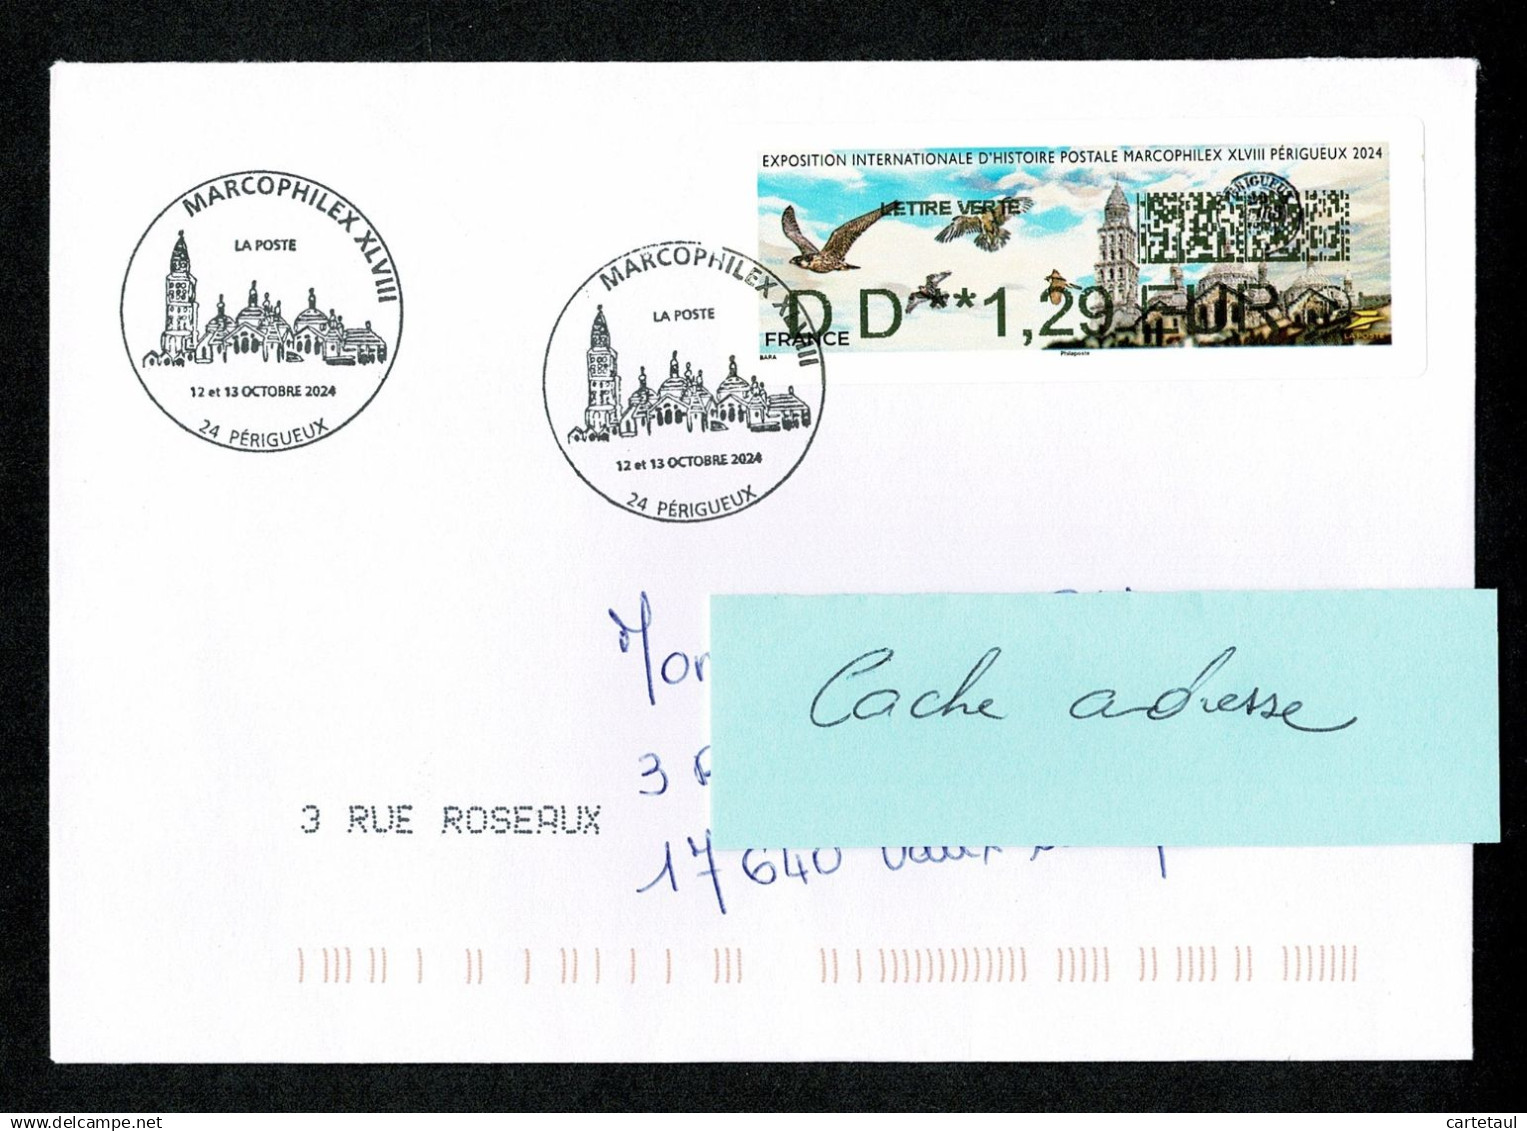 MARCOPHILEX XLVIII
LA POSTE
12 et 13 OCTOBRE 2024
24 PÉRIGUEUX
MARCOPHILEX XLVIII
LA POSTE
12 et 13 OCTOBRE 2024
24 PÉRIGUEUX
EXPOSITION INTERNATIONALE D'HISTOIRE POSTALE MARCOPHILEX XLVIII PÉRIGUEUX 2024
PÉRIGUEUX
LETTRE VERTE
DD**1,29 EUR
FRANCE
LA POSTE
BARA
Philaposte
Cache adresse
3
3 RUE ROSEAUX
17640
cartetaul